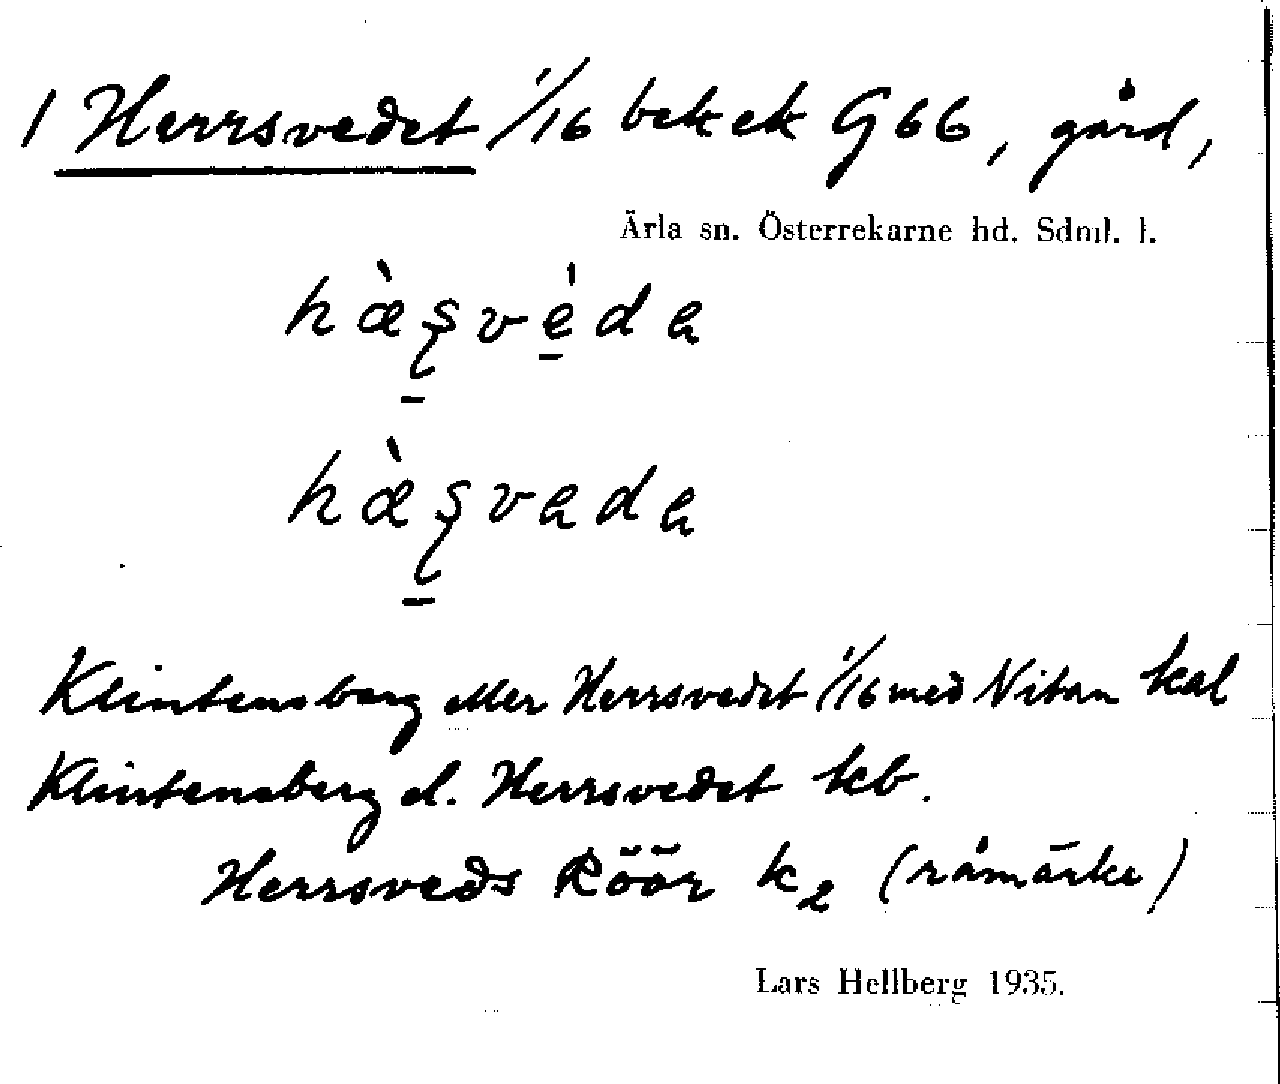 1 Herrsvedet 1/16 bek ek G66, gård,
Ärla sn. Österrekarne hd. Sdml. l.
hæ̀ʂvéda
hæ̀ʂvada
Klintensberg eller Herrsvedet 1/16 med Nitan kal
Klintensberg el. Herrsvedet kb.
Herrsveds Röör k2 (råmärke)
Lars Hellberg 1935.